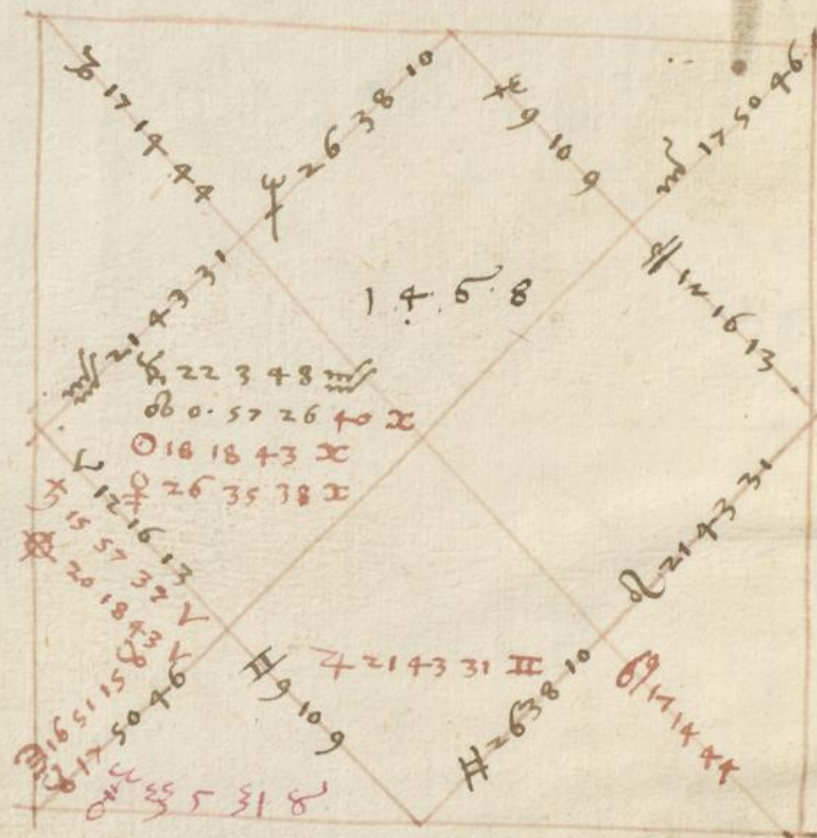 ♑ 17 14 44
♐ 26 38 10
♐ 9 10 9
♏ 17 50 46
♒ 21 43 31
1 4 5 8
♎ 12 16 13
22 3 48 ♒
☊ 0 57 26 40 ♓
☉ 18 18 43 ♓
♀ 26 35 38 ♓
♈ 12 16 13
♄ 15 57 37 ♈
⊗ 20 18 43 ♈
16 51 15 ♉
♉ 17 50 46
♊ 9 10 9
♃ 21 43 31 ♊
♊ 26 38 10
♌ 21 43 31
♋ 17 14 44
♂
5 31 ♉